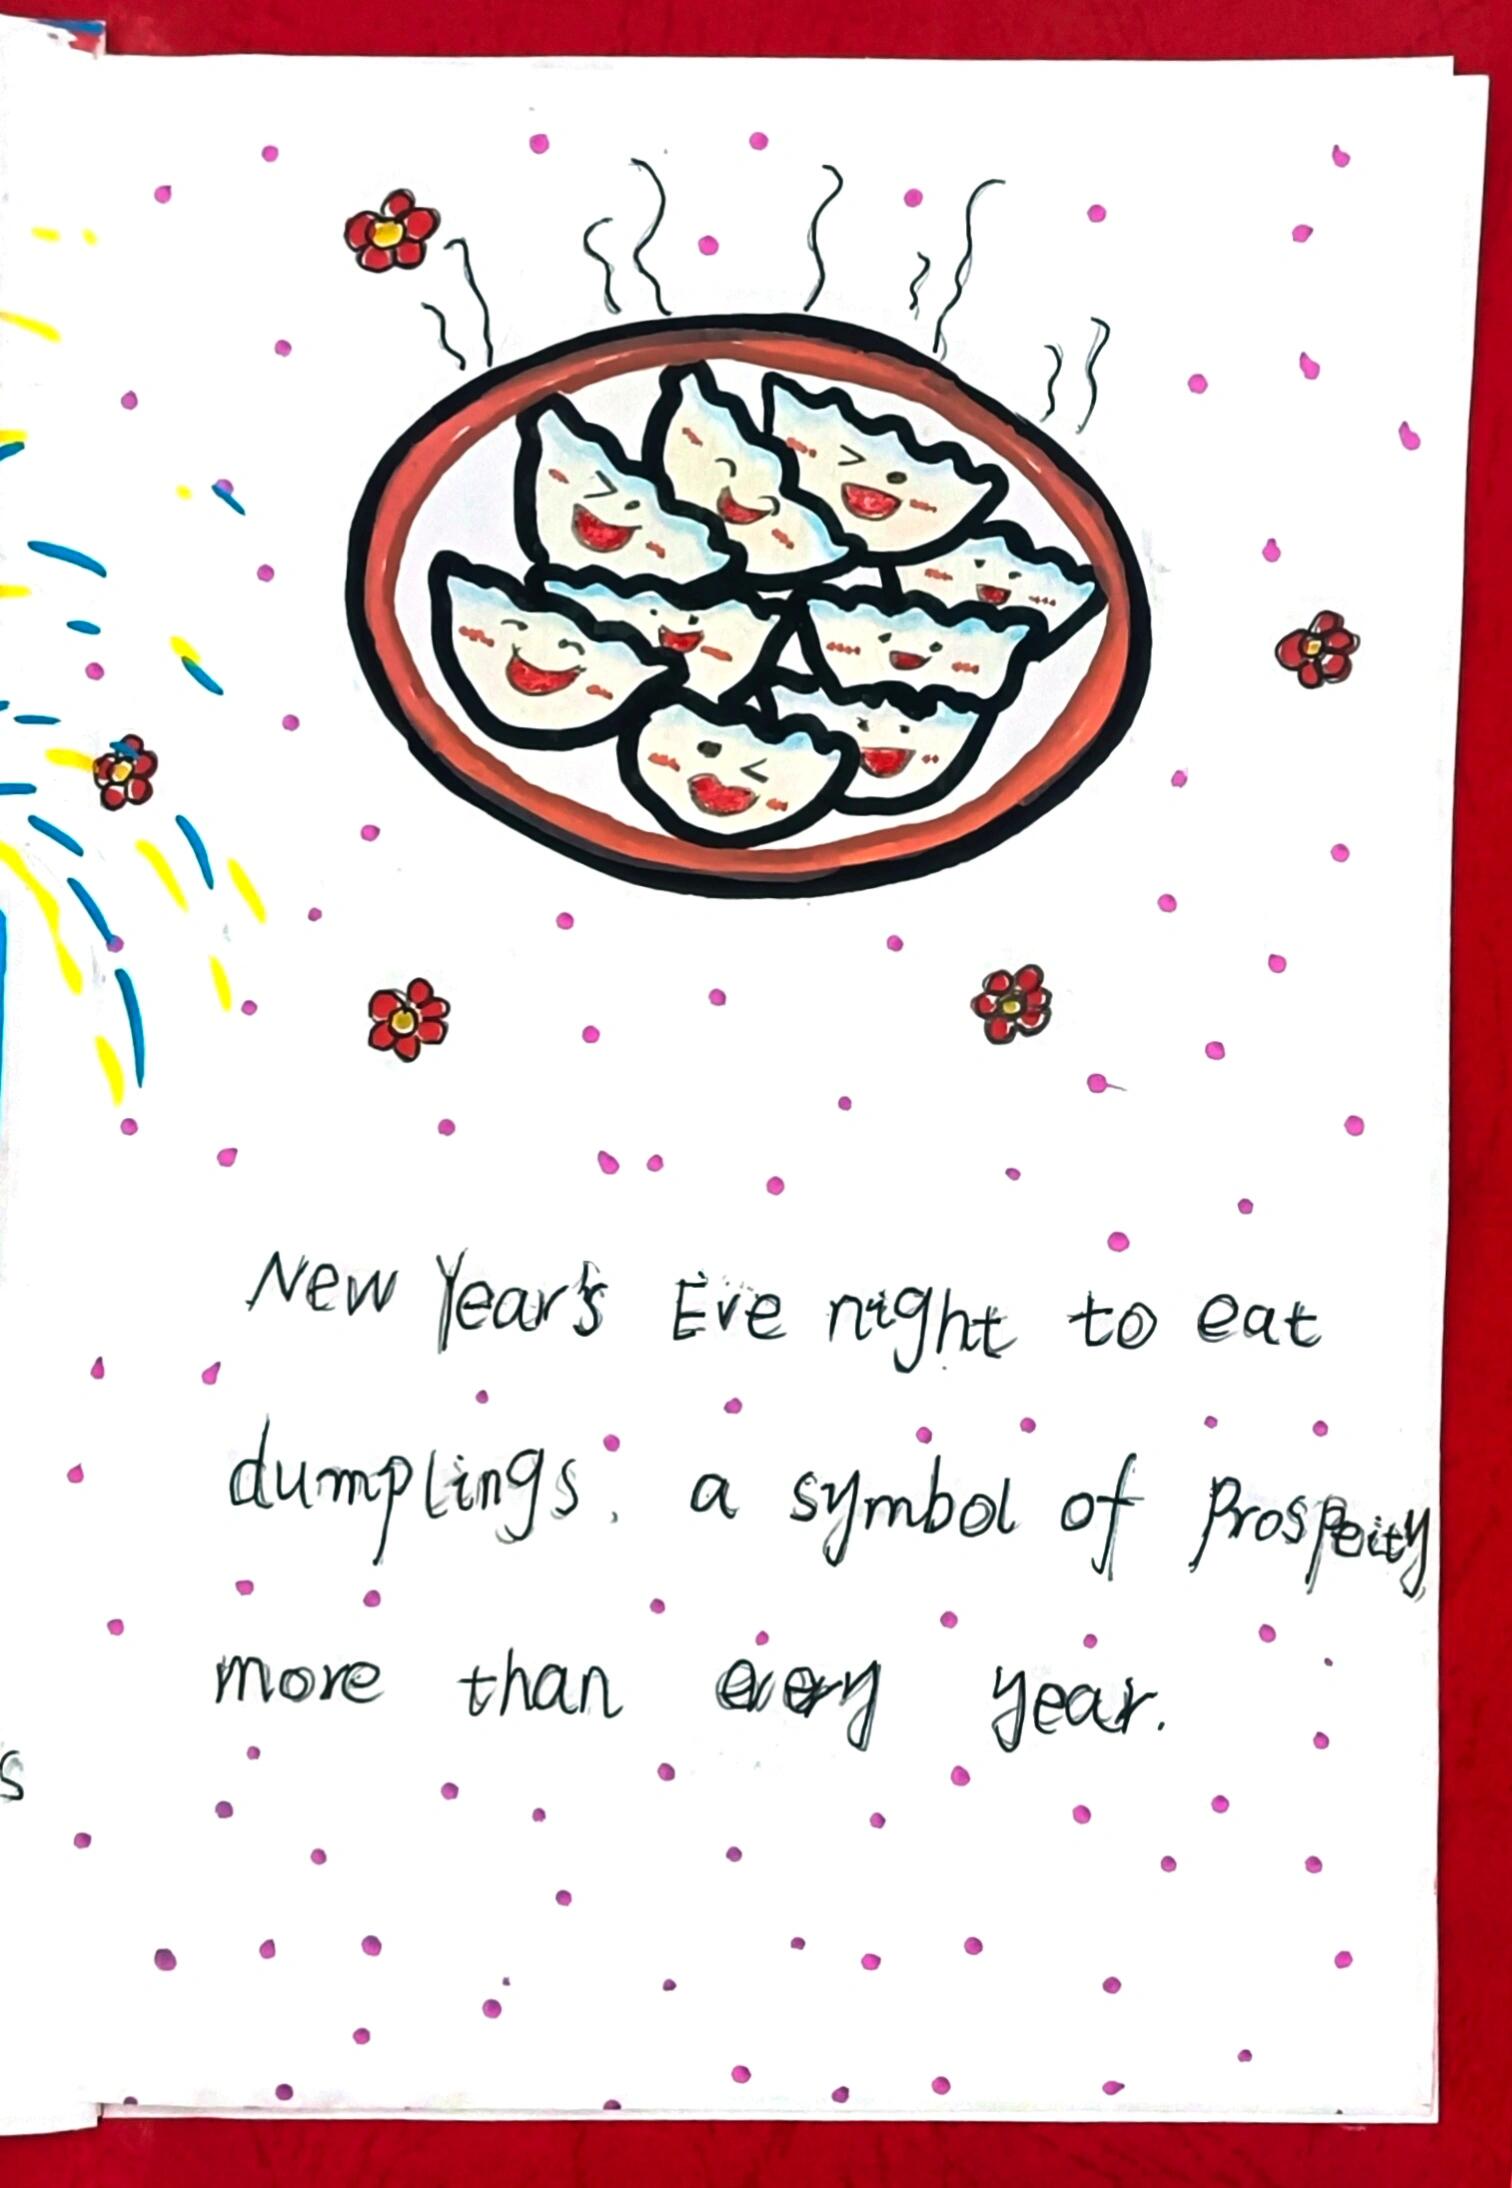 New Year's Eve night to eat
dumplings, a symbol of Prospeity
more than every year.
s